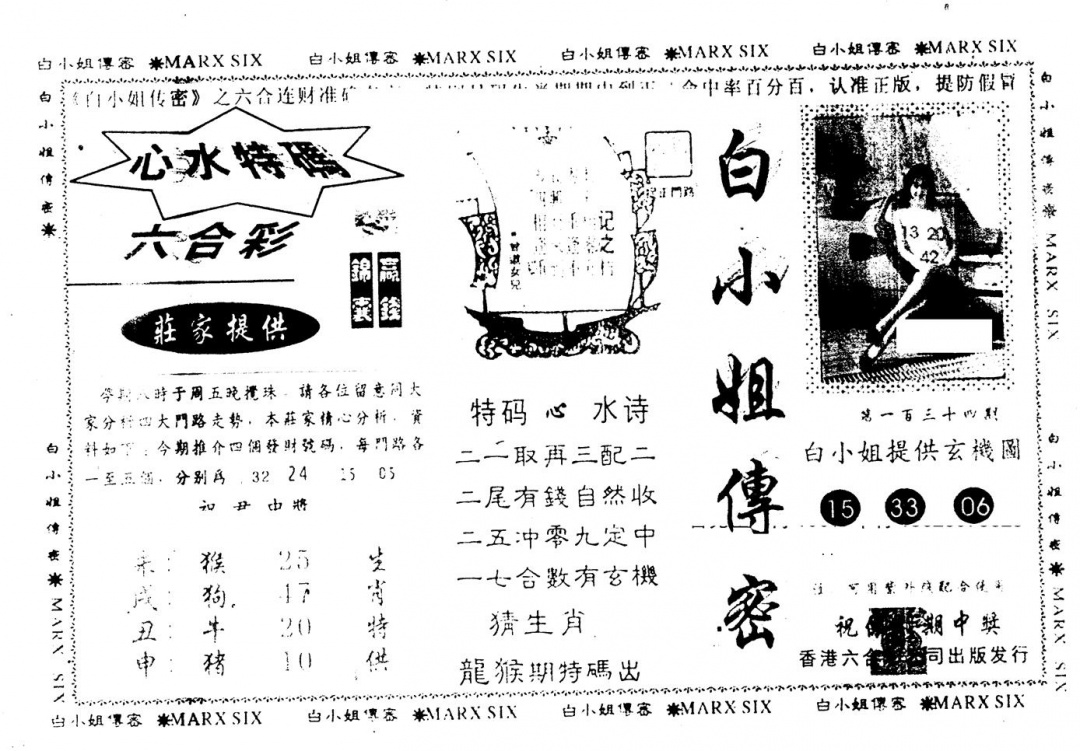 白小姐傳密 ※MARX SIX 白小姐傳密 ※MARX SIX 白小姐傳密 ※MARX SIX 白小姐傳密 ※MARX SIX
《白小姐传密》之六合连财准 中率百分百，认准正版，提防假冒
心水特碼
六合彩
錦囊
贏錢
莊家提供
八時于周五晚攪珠．請各位留意同大
家分析四大門路走勢，本莊家精心分析，資
料如下：今期推介四個發財號碼，每門路各
一至五個，分別爲 32 24 15 05
未： 猴 25 生
戌： 狗 47 肖
丑： 牛 20 特
申： 猪 10 供
記之
曾淑女兒
門路
特码心水诗
二一取再三配二
二尾有錢自然收
二五冲零九定中
一七合数有玄機
猜生肖
龍猴期特碼出
白小姐傳密
13 20
42
第一百三十四期
白小姐提供玄機圖
15 33 06
注 可用紫外线配合使用
祝 期中奖
香港六合 司出版发行
白小姐傳密※ MARX SIX
白小姐傳密※ MARX SIX
白小姐傳密※ MARX SIX
白小姐傳密 ※MARX SIX 白小姐傳密 ※MARX SIX 白小姐傳密 ※MARX SIX 白小姐傳密 ※MARX SIX